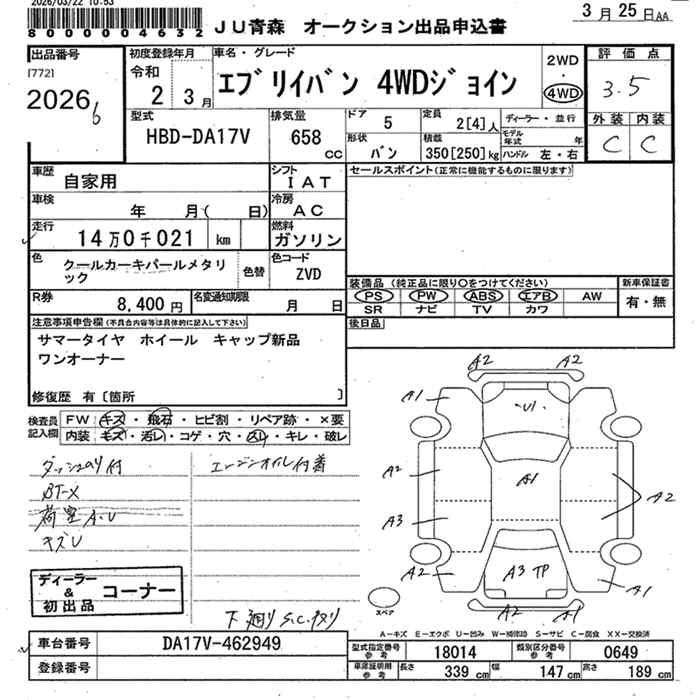 2026/03/22 10:53
8000004632
JU青森 オークション出品申込書
3月25日AA
出品番号
[772]
2026
6
初度登録年月
令和
2 3月
車名・グレード
エブリイバン 4WDジョイン
2WD
・
4WD
評価点
3.5
外装 内装
C C
型式
HBD-DA17V
排気量
658
CC
ドア
5
定員
2[4]人
形状
バン
積載
350[250]kg
ディーラー・並行
モデル年式 年
ハンドル 左・右
車歴
自家用
シフト
IAT
セールスポイント(正常に機能するものに限ります)
車検
年 月( 日)
冷房
AC
走行
14万0千021 km
燃料
ガソリン
色
クールカーキパールメタリック
色替
色コード
ZVD
装備品(純正品に限り○をつけてください)
PS PW ABS エアB AW
SR ナビ TV カワ
新車保証書
有・無
R券
8,400円
名変通知期限
月 日
後日品
注意事項申告欄(不具合内容等は具体的に記入して下さい)
サマータイヤ ホイール キャップ新品
ワンオーナー
修復歴 有〔箇所 〕
検査員記入欄
FW キズ・飛石・ヒビ割・リペア跡・×要
内装 キズ・汚レ・コゲ・穴・スレ・キレ・破レ
ダッシュのり付
BT-X
荷室A.U
キズU
エンジンオイル付着
下廻りS.C.サビ
ディーラー
&
初出品
コーナー
A2 A2
A1
U1
A2
A1
A2
A3
A2
A3 TP
A1
A2 A1
スペア
A-キズ E-エクボ U-凹み W-補修跡 S-サビ C-腐食 XX-交換済
車台番号
DA17V-462949
登録番号
型式指定番号
参考
18014
類別区分番号
参考
0649
車庫証明用
参考
長さ
339 cm
幅
147 cm
高さ
189 cm